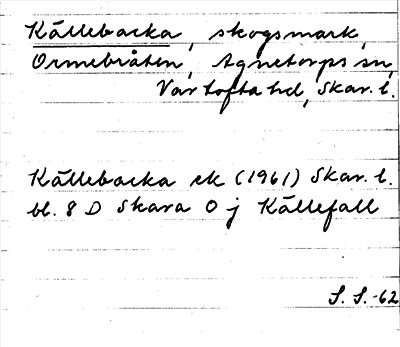 Källebacka, skogsmark,
Ormebråten, Agnetorps sn,
Vartofta hd, Skar. l.
Källebacka ek (1961) Skar. l.
bl. 8 D Skara O j Källefall
S. S. -62